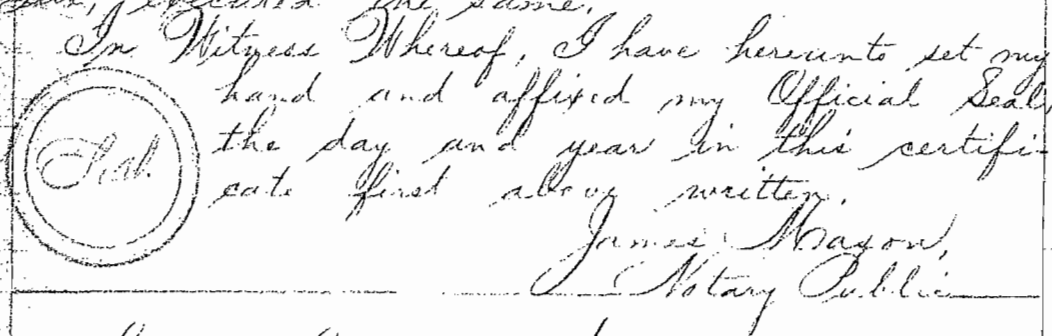 executed the same.
In Witness Whereof, I have hereunto set my
hand and affixed my Official Seal,
the day and year in this certifi-
Seal.
cate first above written.
James Mason,
Notary Public